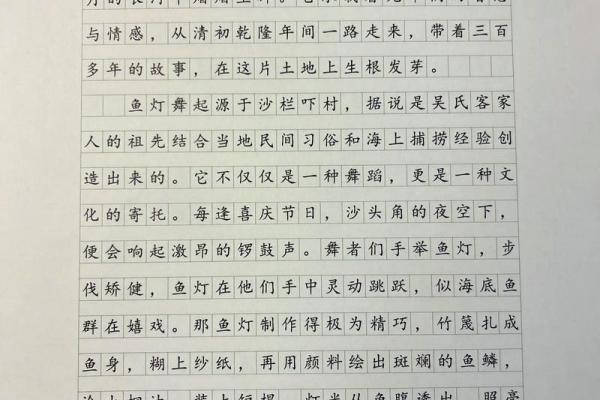 与情感，从清初乾隆年间一路走来，带着三百
多年的故事，在这片土地上生根发芽。
鱼灯舞起源于沙栏吓村，据说是吴氏客家
人的祖先结合当地民间习俗和海上捕捞经验创
造出来的。它不仅仅是一种舞蹈，更是一种文
化的寄托。每逢喜庆节日，沙头角的夜空下，
便会响起激昂的锣鼓声。舞者们手举鱼灯，步
伐矫健，鱼灯在他们手中灵动跳跃，似海底鱼
群在嬉戏。那鱼灯制作得极为精巧，竹篾扎成
鱼身，糊上纱纸，再用颜料绘出斑斓的鱼鳞，